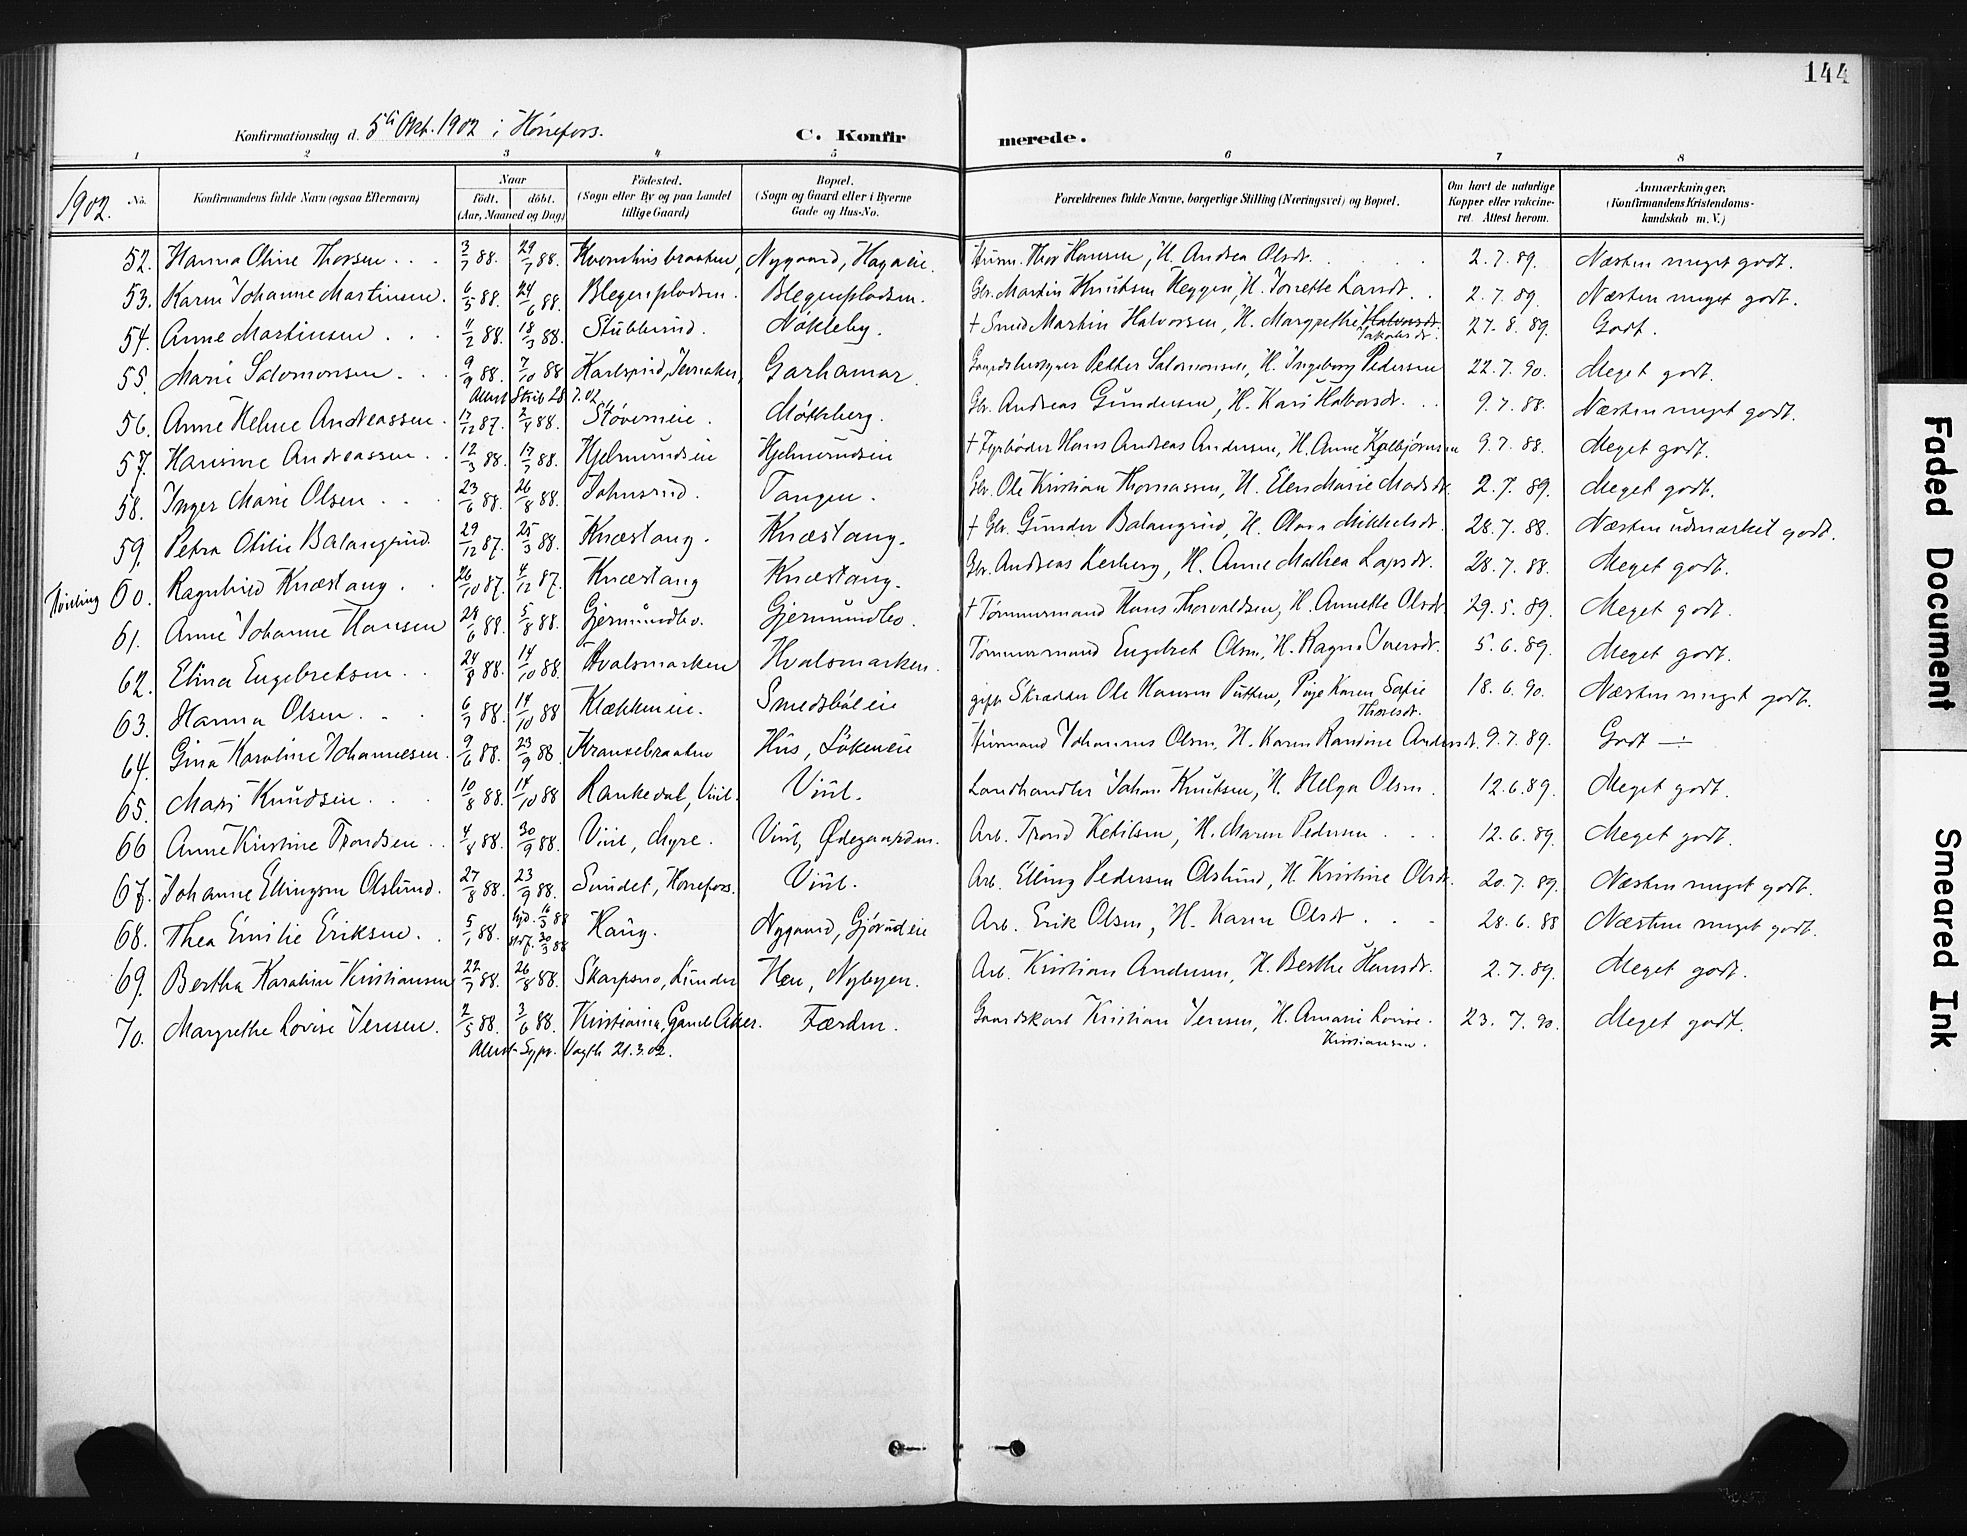 144
Konfirmationsdag d. 5te Okt. 1902 i Hønefos. C. Konfirmerede.
1 2 3 4 5 6 7 8
1902. No. Konfirmandens fulde Navn (ogsaa Efternavn) Naar født. døbt. (Aar, Maaned og Dag) Fødested. (Sogn eller By og paa Landet tillige Gaard) Bopæl. (Sogn og Gaard eller i Byerne Gade og Hus-No. Forældrenes fulde Navne, borgerlige Stilling (Næringsvei) og Bopæl. Om havt de naturlige Kopper eller vaccineret. Attest herom. Anmærkninger. (Konfirmandens Kristendomskundskab m. V.)
52. Hanna Oline Thorsen 3/7 88. 29/7 88. Kvernhusbraaten, Nygaard, Hagaeie. Husm. Thor Hansen, H. Andrea Olsdt. 2.7.89. Næsten meget godt.
53. Karen Johanne Martinsen. 6/5 88. 24/6 88. Blegenpladsen. Blegenpladsen. Gbr. Martin Knutsen Heggen, H. Jonette Larsdt. 2.7.89. Næsten meget godt.
54. Anne Martinsen 11/2 88. 18/3 88. Stubberud. Nøkleby. † Smed Martin Halvorsen, H. Margrethe Halvorsdt. Jakobsdt. 27.8.89. Godt.
55. Marie Salomonsen 9/9 88. 7/10 88 Karlsrud, Jevnaker, Garhamar. Gaardsbestyrer Petter Salomonsen, H. Ingeborg Pedersen 22.7.90. Meget godt.
Attest Strib 28 7.02.
56. Anne Helene Andreassen. 17/12 87. 2/4 88. Støverneie. Møkleberg. Gbr. Andreas Gundersen, H. Kari Halvorsdt. 9.7.88. Næsten meget godt.
57. Hansine Andreassen 12/3 88. Hjelmundseie Hjelmundseie † Fyrbøder Hans Andreas Andersen, H. Anne Kolbjørnsen 9.7.88. Meget godt.
58. Inger Marie Olsen 23/6 88. 26/8 88. Johnsrud. Tangen. Gbr. Ole Kristian Thomassen, H. Elen Marie Madsdt. 2.7.89. Meget godt.
59. Petra Otilie Balangrud. 29/12 87. 25/3 88. Knæstang. Knæstang. † Gbr. Gunder Balangrud, H. Olava Mikkelsdt. 28.7.88. Næsten udmærket godt.
60. Ragnhild Knæstang. 26/10 87. 4/12 87. Knæstang Knæstang. Gbr. Andreas Lerberg, H. Anne Mathea Larsdt. 28.7.88. Meget godt.
Tvilling
61. Anne Johanne Hansen 24/6 88. 5/8 88. Gjermundbo. Gjermundbo. † Tømmermand Hans Thorvaldsen, H. Annette Olsdt. 29.5.89. Meget godt.
62. Elina Engebretsen 24/8 88. 14/10 88. Hvalsmarken Hvalsmarken. Tømmermand Engebret Olsen, H. Ragne Iversdt. 5.6.89. Meget godt.
63. Hanna Olsen 6/7 88. 14/10 88 Klækkeneie. Smedsbøleie gift Skrædder Ole Hansen Putten, Pige Karen Sofie Thoresdt. 18.6.90. Næsten meget godt.
64. Gina Karoline Johannesen. 9/6 88. 23/9 88. Kransebraaten Hus, Løkeneie Husmand Johannes Olsen, H. Karen Randine Andersdt. 9.7.89. Godt –:
65. Mari Knudsen. 10/8 88. 14/10 88 Rankedal, Viul. Viul. Landhandler Johan Knutsen, H. Helga Olsen. 12.6.89. Meget godt.
66 Anne Kristine Trondsen 4/8 88. 30/9 88. Viul, Myre. Viul, Ødegaarden. Arb. Trond Ketilsen, H. Maren Pedersen 12.6.89. Meget godt.
67. Johanne Ellingsen Olslund. 27/8 88. 23/9 88. Sundet, Hønefos. Viul. Arb. Elling Pedersen Olslund, H. Kristine Olsdt. 20.7.89. Næsten meget godt.
68. Thea Emilie Eriksen. 5/1 88. 30/3 88 Haug. Nygaard, Gjørudeie Arb. Erik Olsen, H. Karen Olsdt 28.6.88 Næsten meget godt.
69. Bertha Karoline Kristiansen 22/7 88. 26/8 88. Skarpsno, Lunder Hen, Nybyen. Arb. Kristian Andersen, H. Berthe Hansdt. 2.7.89. Meget godt.
70. Margrethe Lovise Jensen. 2/5 88. 3/6 88. Kristiania, Gamle Aker. Færden. Gaardskarl Kristian Jensen, H. Amanie Lovise Kristiansen. 23.7.90. Meget godt.
Attest Sgpr. Vagth 21.3.02.
Faded Document
Smeared Ink